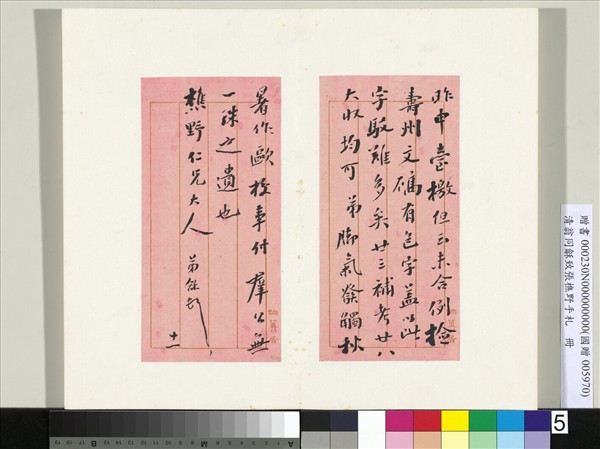 昨申臺檄但云未合例撿
壽州文碼有包字蓋以此
字駁難多矣廿三補考廿八
大收均可弟脚氣發觸秋
暑作歐校事付羣公無
一珠之遺也
樵野仁兄大人 弟
十一
贈書 000230N000000000(國贈 005970)
清翁同龢致張樵野手札 冊
5